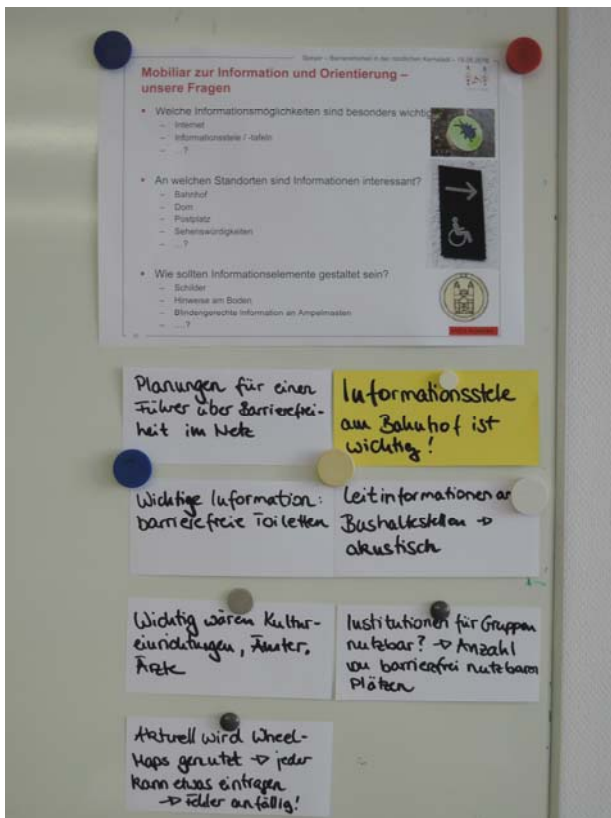 Speyer – Barrierefreiheit in der nördlichen Kernstadt –
Mobiliar zur Information und Orientierung –
unsere Fragen
• Welche Informationsmöglichkeiten sind besonders wichtig
– Internet
– Informationsstele / -tafeln
– ...?
• An welchen Standorten sind Informationen interessant?
– Bahnhof
– Dom
– Postplatz
– Sehenswürdigkeiten
– ...?
• Wie sollten Informationselemente gestaltet sein?
– Schilder
– Hinweise am Boden
– Blindengerechte Information an Ampelmasten
– ....?
Planungen für einen
Führer über Barrierefrei-
heit im Netz
Informationsstele
am Bahnhof ist
wichtig!
Wichtige Information:
barrierefreie Toiletten
Leitinformationen an
Bushaltestellen →
akustisch
Wichtig wären Kultur-
einrichtungen, Ämter,
Ärzte
Institutionen für Gruppen
nutzbar? → Anzahl
von barrierefrei nutzbaren
Plätzen
Aktuell wird Wheel-
Maps genutzt → jeder
kann etwas eintragen
→ Fehler anfällig!